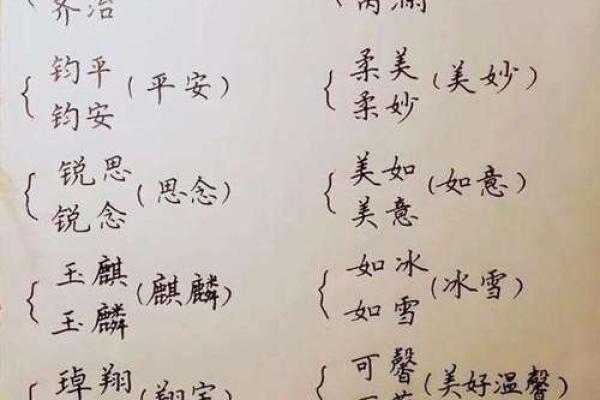 钧平
(平安)
钧安
锐思
(思念)
锐念
玉麒
(麒麟)
玉麟
琸翔
柔美
(美妙)
柔妙
美如
(如意)
美意
如冰
(冰雪)
如雪
可馨
(美好温馨)